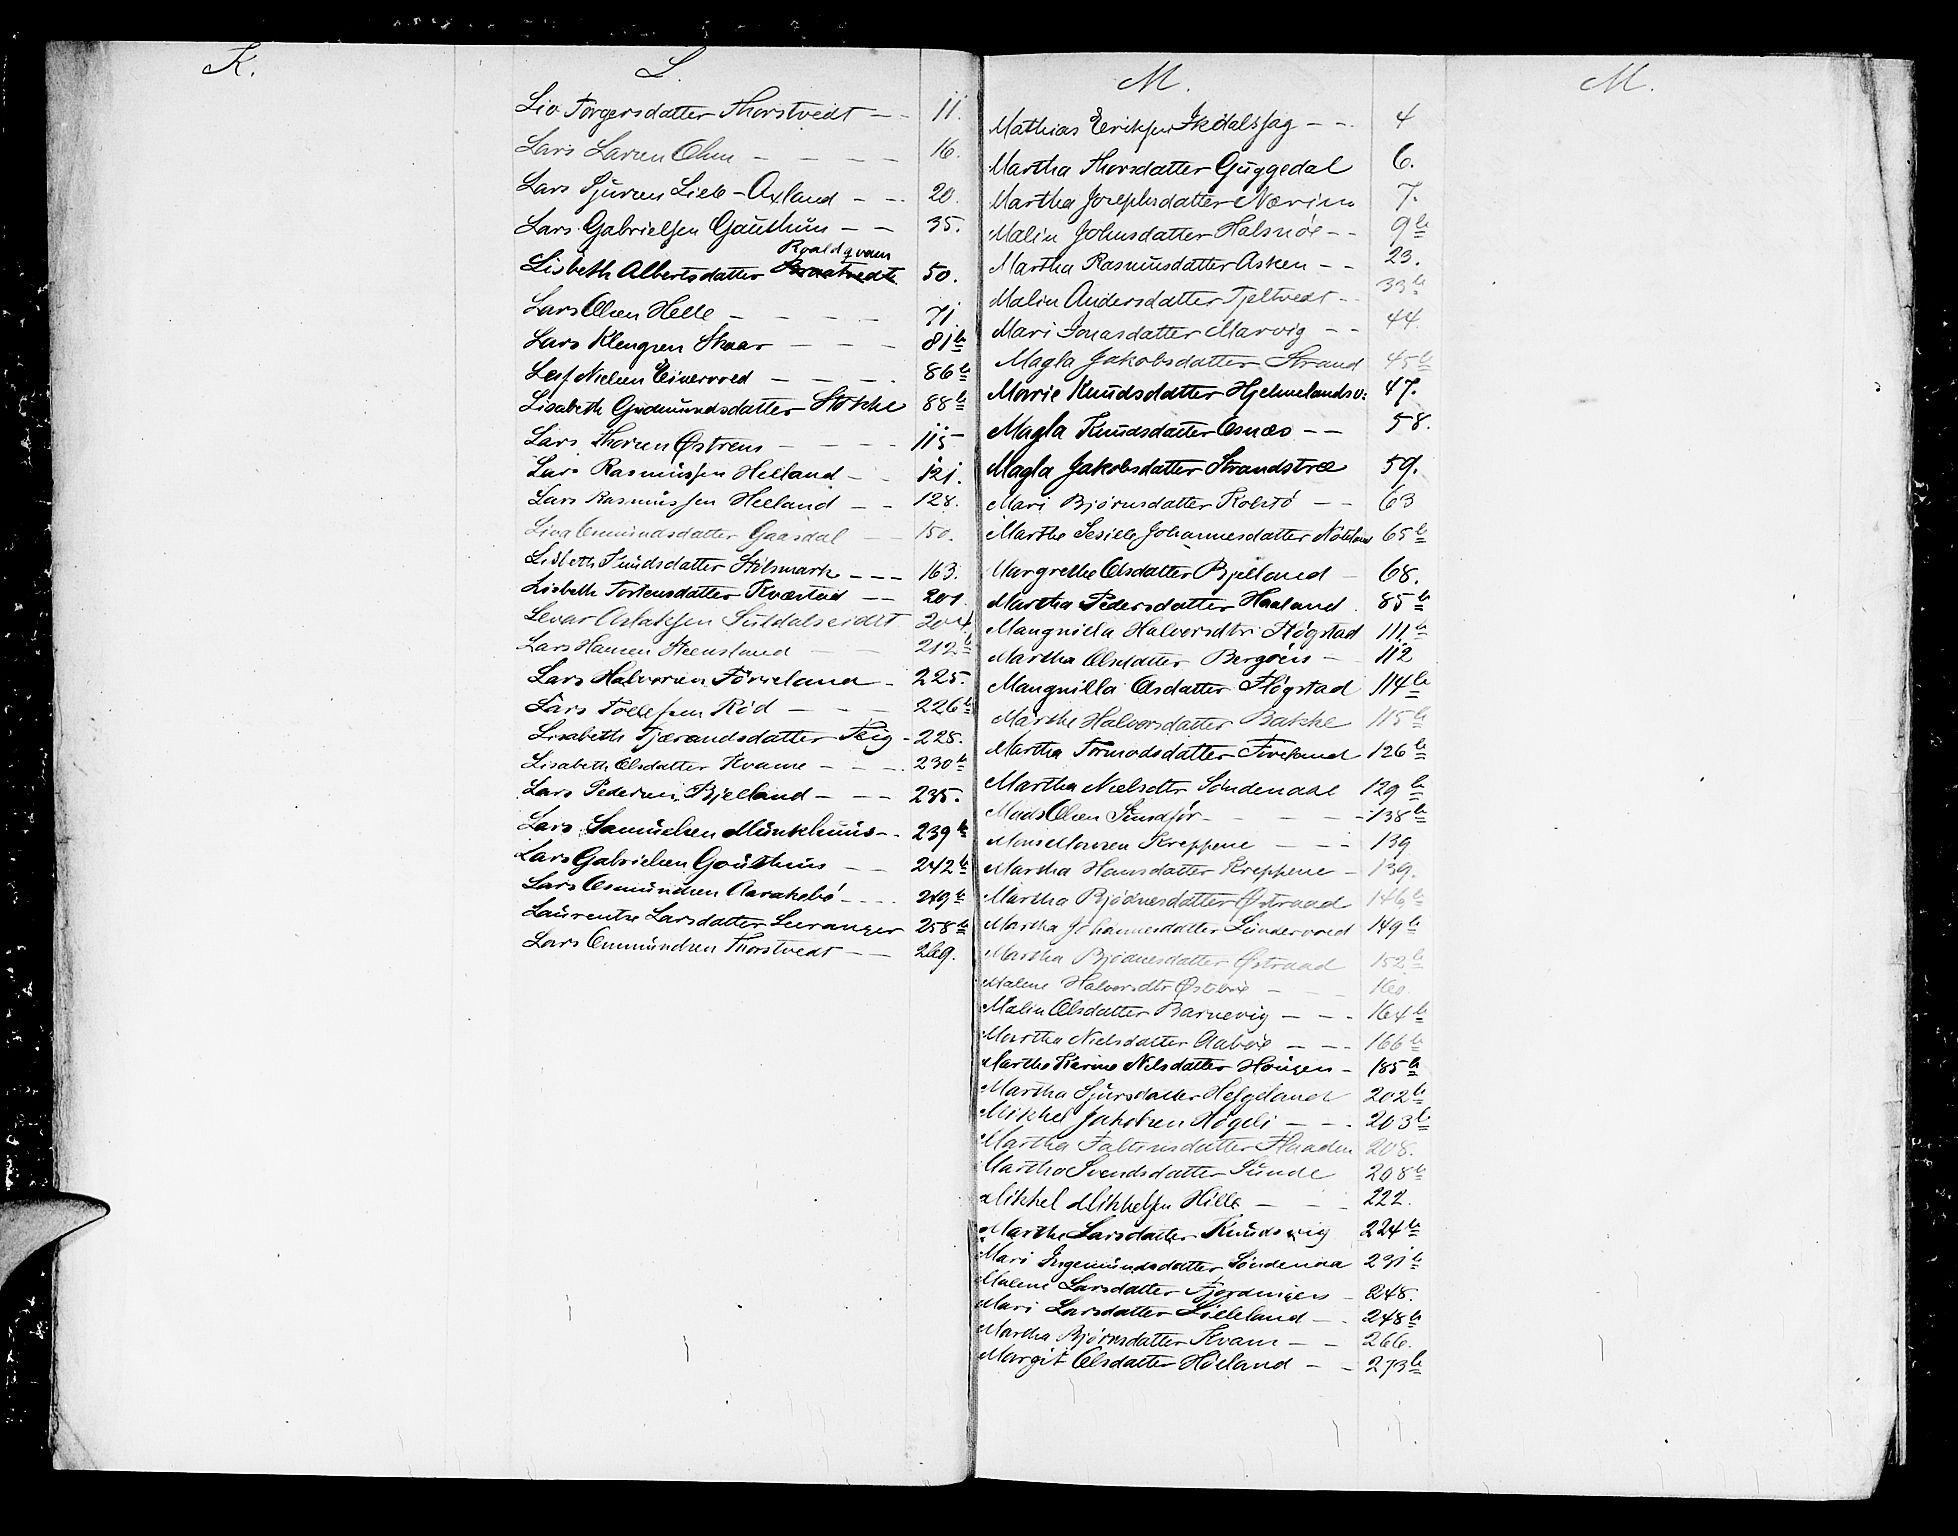 K.
L.
Liv Torgersdatter Thorstvedt — - 11.
Lars Larsen Ohm — — — — 16.
Lars Sjursen Lieb-Axland — -. 20.
Lars Gabrielsen Gauthun — — 35.
Roaldqvam
Lisbeth Albertsdatter 50.
Lars Olsen Helle — — — — 71.
Lars Klengsen Skaar — — — 81b
Leif Nielsen Eivervoed — — — . 86b
Lisabeth Gudmundsdatter Stokke 88b
Lars Thorsen Østrem — — — — 115
Lars Rasmussen Helland — - 121.
Lars Rasmussen Helland — - 128.
Liva Osmundsdatter Gaasdal — 150.
Lisbeth Knudsdatter Stølsmark — — — 163.
Lisbeth Torkensdatter Kvæstad — — 201
Levar Aslaksen Suldalseidet 204
Lars Hansen Steensland — — 212b
Lars Halvorsen Førreland - 225.
Lars Tollefsen Rød — — — 226b
Lisabeth Tjærandsdatter Teig - 228.
Lisabeth Olsdatter Kvame — - -. 230b
Lars Pedersen Bjelland — — — 235.
Lars Samuelsen Munkhuus -. 239b
Lars Gabrielsen Gauthun — — 242b
Lars Osmundsen Aarakebø - - . . 249b
Laurentze Larsdatter Leeranger 258b
Lars Ommundsen Thorstvedt — — 269.
M.
Mathias Eriksen — -. 4
Martha Thorsdatter Guggedal 6.
Martha Josephsdatter Nærim 7.
Malin Johnsdatter Halsnøe - - 9b
Martha Rasmusdatter Asken - - 23.
Malin Andersdatter Tjeltvedt -. 33b
Mari Jonasdatter Marvig - - 44.
Magla Jakobsdatter Strand 45b
Marie Knudsdatter Hjelmelandsv: 47.
Magla Knudsdatter Osnæs — — 58.
Magla Jakobsdatter Strandstræ 59.
Mari Bjørnsdatter Kolstø — — 63
Marthe Sesilie Johannesdatter 65b
Margrethe Olsdatter Bjelland — 68.
Martha Pedersdatter Haaland . 85b
Mangnilla Halvorsdtr. Høgstad 111b
Martha Olsdatter Bergøen - 112
Mangnilla Olsdatter Høgstad 114b
Marthe Halvorsdatter Bakke 115b
Martha Tormodsdatter Foreland 126b
Martha Nielsdtr Søndenaae 129b
Mads Olsen Sandfør - - — - - 138b
Mons Monsen Kreppene — - - 139
Martha Hansdatter Kreppene - 139.
Martha Bjødnesdatter Østraad 146b
Martha Johannesdatter Sundervoed 149b
Martha Bjødnesdatter Østraad 152b
Malene Halvorsdtr Østebøe — — 160.
Malin Olsdatter Barnevig — — - 164b
Martha Nielsdatter Aabøe — — - 166b
Marthe Karine Nilsdatter Hougen - 185b
Martha Sjursdatter Helgeland 202b
Mikkel Jakobsen Høgeli — - -. 203b
Martha Faltinsdatter Flaaden 208.
Martha Svendsdatter Sunde 208b
Mikkel Mikkelsen Hille — - - 222.
Marthe Larsdatter Knudsvig 224b
Mari Ingemundsdatter Søndenaa 231b
Malene Larsdatter Fjordingen - 248.
Mari Larsdatter Lielleland — - 248b
Martha Bjørnsdatter Kvam — - 266.
Margit Olsdatter Høeland — - 273b
M.